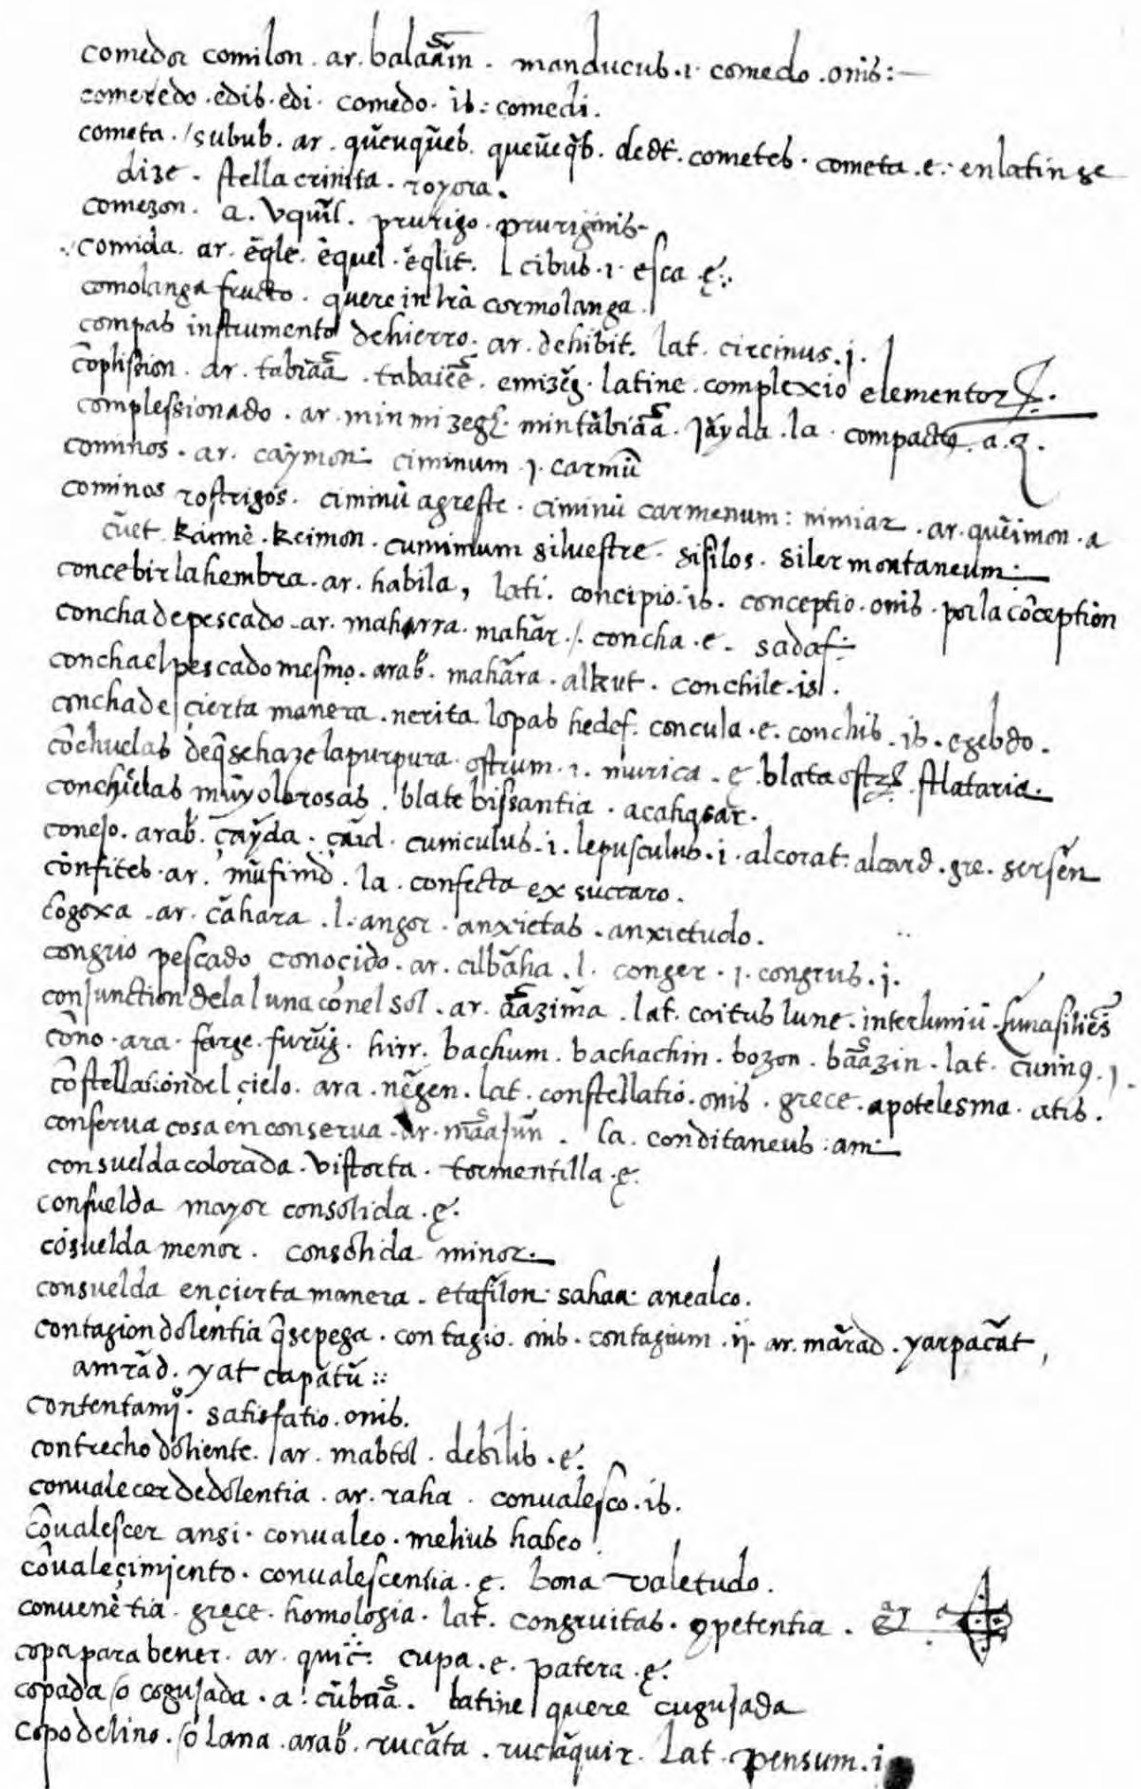 comedor comilon . ar. balaâin . manducus .i. comedo .onis :—
comeredo .edis .edi . comedo . is : comedi.
cometa . subub . ar . que᷃uque᷃b . que᷃ueq᷃b . dedt . cometes . cometa .e. en latin se
dize . stella crinita . royora.
comezon . a. vqui᷃l . prurigo . pruriginis–
comida . ar. e᷃qle . equel . e᷃qlit . l cibus .i. esca ę.
comolanga fructo . quere in lr̃a cormolanga .
compas instrumento de hierro . ar. dehibit . lat. circinus .j.
co᷃plission . ar. tabiâa . tabaiêe . emize᷃g . latine . complexio elementor
complessionado . ar. min mizeg . mintabiâa . jayda . la . compactꝯ .a.
cominos . ar. caymon : ciminum .j. carmu᷃
cominos rostrigos . ciminu᷃ agreste . ciminu᷃ carmenum : nimiar . ar. que᷃imon . a
cu᷃et . kaimè . keimon . cuminum siluestre . sisilos . siler montaneum :—
concebir la hembra . ar. habila , lati. concipio .is . conceptio .onis . por la co᷃ception
concha de pescado . ar. maharra . maha᷃r . concha .e. sadaf :
concha el pescado mesmo . arab . maha᷃ra . alkut . conchile .is .
concha de çierta manera . nerita lopas hedef . concula .e. conchis .is . egebdo .
co᷃chuelas deq᷃ se haze la purpura . ostrum .i. murica . ę blata . stlataria .
conchuelas muy olorosas . blate bissantia . acahqsar .
conejo . arab . çayda . çaid . cuniculus .i. lepusculus .i. alcorat : alcard . gre. sersen
confites . ar. mu᷃fimd . la . confecta ex succaro .
cogoxa . ar. ca᷃hara . l. angor . anxietas . anxietudo .
congrio pescado conoçido . ar. cilba᷃ha . l. conger .j. congrus .j.
conjunction dela luna co᷃nel sol . ar. âazima᷃ . lat. coitus lune . interluniu᷃ .
co᷃no . ara . farge . furu᷃g . hirr . bachum . bachachin . bozon . bâazin . lat . cunnꝯ .j.
co᷃stellation del çielo . ara . ne᷃gen . lat . constellatio .onis . grece . apotelesma . atis .
conserua cosa en conserua . ar . mâajun . la . conditaneus : am :
consuelda colorada . vistorta . tormentilla .ę.
consuelda mayor consolida .ę.
co᷃suelda menor . consolida minor .
consuelda en çierta manera . etafilon : sahaa : anealco .
contagion dolentia q᷃ se pega . contagio . onis . contagium .ij. ar. ma᷃rad . yarpaca᷃t ,
amra᷃d . yat capatu᷃ ::
contentamj° . satisfatio .onis .
contrecho doliente . ar . mabtol . debilis .e.
conualecer de dolentia . ar. raha . conualesco .is .
co᷃ualescer ansi . conualeo . melius habeo
co᷃ualeçimjento . conualescentia .ę. bona valetudo .
conuene᷃tia . gręce . homologia . lat. congruitas . ꝯpetentia .
copa para beuer . ar. quiç : cupa .e. patera .ę.
copada /o cogujada . a : cu᷃bâa . latine quere cugujada
copo de lino . /o lana . arab . ruca᷃ta . ruca᷃quir . lat . pensum .i